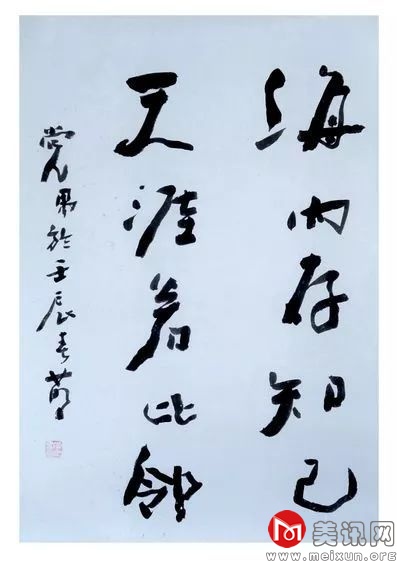 海内存知己
天涯若比邻
于壬辰春
美讯网
www.meixun.org